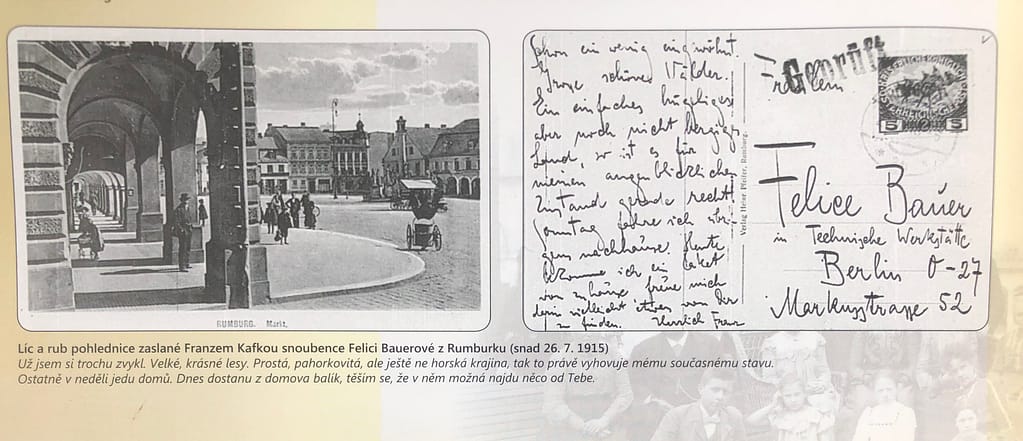 RUMBURG. Markt.
Schon ein wenig eingewöhnt.
Grosse schöne Wälder.
Ein einfaches hügeliges
aber noch nicht bergiges
Land, so ist es für
meinen augenblicklichen
Zustand gerade recht.
Sonntag fahre ich übri-
gens nachhause. Heute
bekomme ich ein Paket
von zuhause freue mich
darin vielleicht etwas von Dir
zu finden. Herzlich Franz
Verlag Heinr. Pfeifer, Rumburg.
Geprüft
Fräulein
5 5
Felice Bauer
in Technische Werkstätte
Berlin O-27
Markusstrasse 52
Líc a rub pohlednice zaslané Franzem Kafkou snoubence Felici Bauerové z Rumburku (snad 26. 7. 1915)
Už jsem si trochu zvykl. Velké, krásné lesy. Prostá, pahorkovitá, ale ještě ne horská krajina, tak to právě vyhovuje mému současnému stavu.
Ostatně v neděli jedu domů. Dnes dostanu z domova balík, těším se, že v něm možná najdu něco od Tebe.